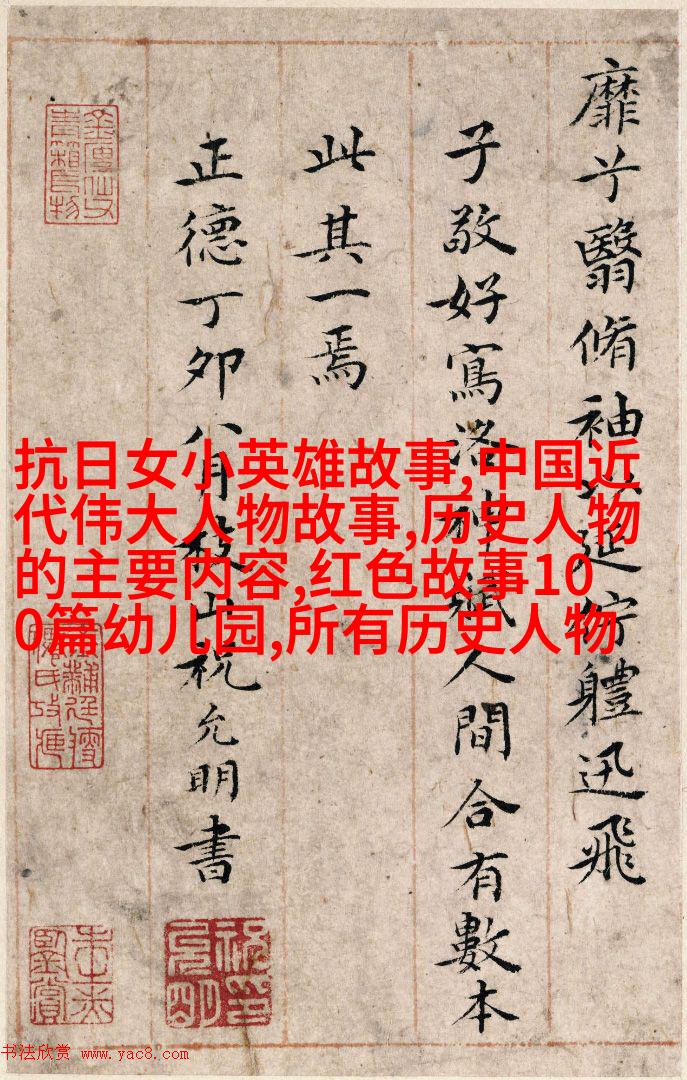 靡兮翳脩袖以延竚體迅飛
子敬好寫洛神賦人間合有數本
此其一焉
正德丁卯八月枝山祝允明書
抗日女小英雄故事,中国近
代伟大人物故事,历史人物
的主要内容,红色故事10
0篇幼儿园,所有历史人物
书法欣赏 www.yac8.com